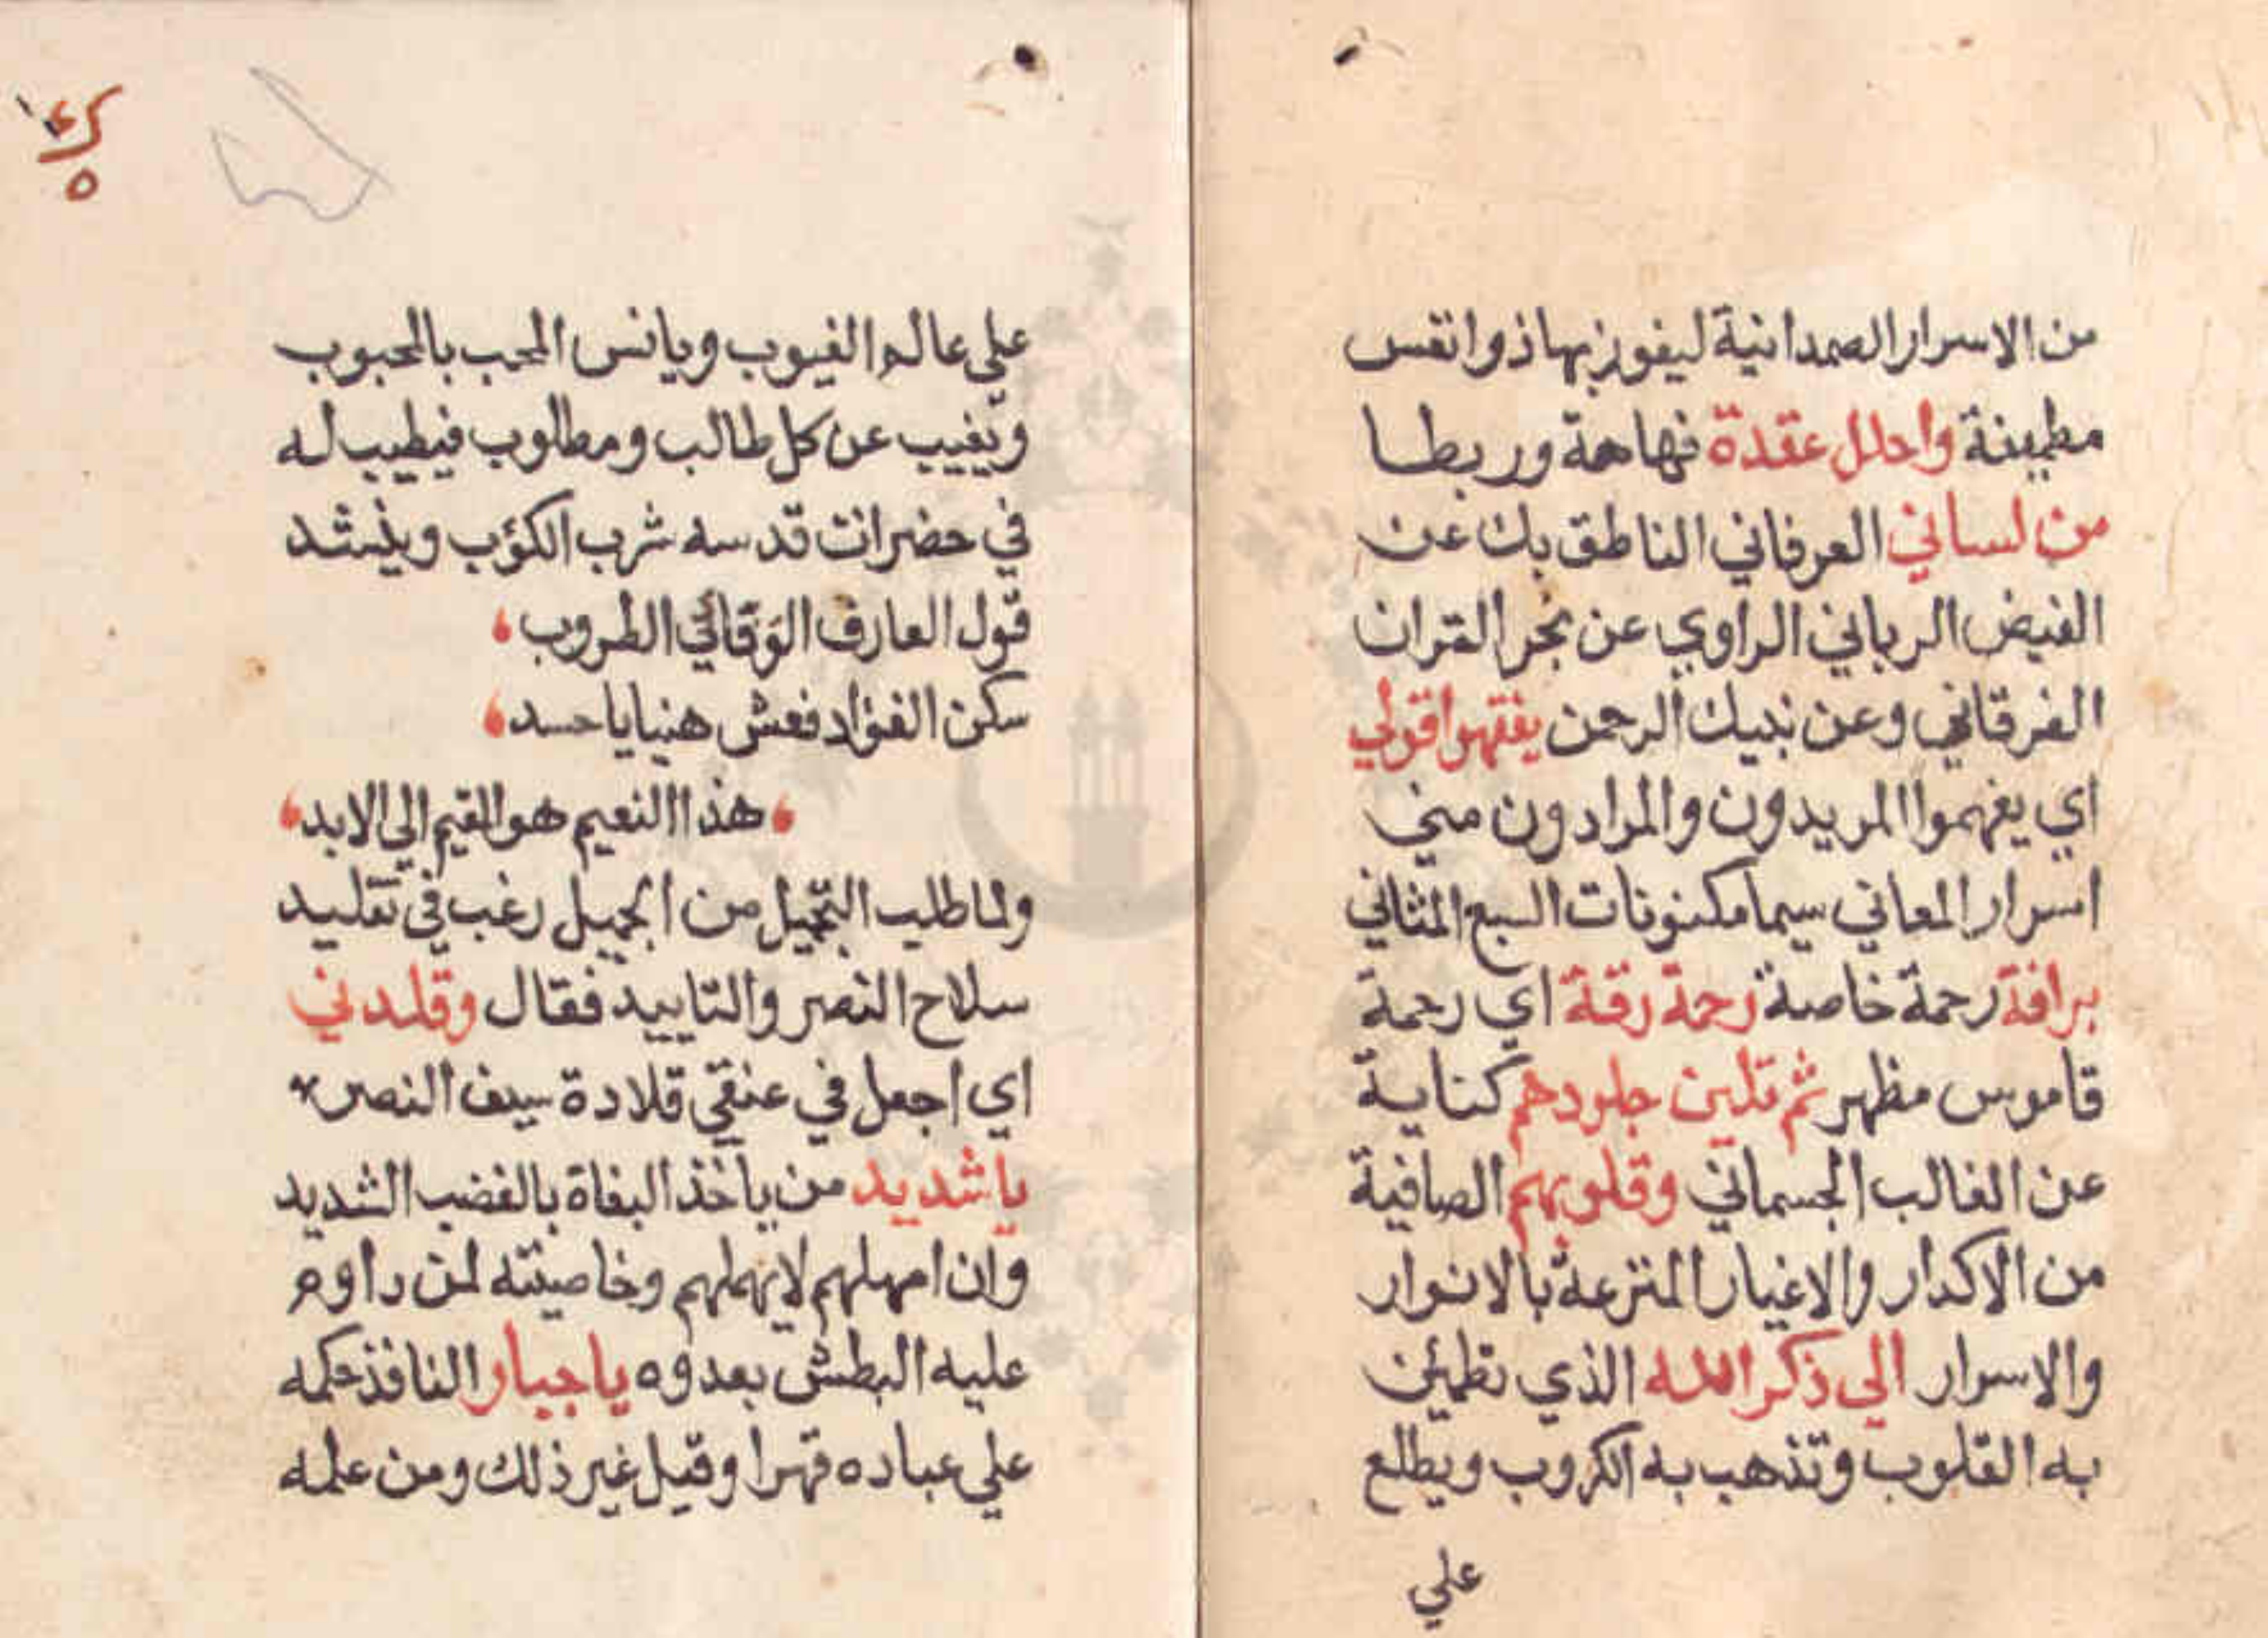 من الاسرار الصمدانية ليفوز بها ذو انقس
مطمينة واحلل عقدة فهاهة وربطا
من لساني العرفاني الناطق بك عن
الفيض الرباني الراوي عن بحر القران
الفرقاني وعن نبيك الرحمن يفقهوا قولي
اي يفهموا المريدون والمرادون مني
اسرار المعاني سيما مكنونات السبع المثاني
برافة رحمة خاصة رحمة رقة اي رحمة
قاموس مظهر ثم تلين جلودهم كناية
عن الغالب الجسماني وقلوبهم الصافية
من الاكدار والاغيار المترعة بالانوار
والاسرار الي ذكر الله الذي تطمئن
به القلوب وتذهب به الكروب ويطلع
علي
علي عالم الغيوب ويانس المحب بالمحبوب
ويغيب عن كل طالب ومطلوب فيطيب له
في حضرات قدسه شرب الكؤب وينشد
قول العارف الوفائي الطروب
سكن الفؤاد فعش هنيا يا حسد
هذا النعيم هو المقيم الي الابد
ولما طلب التجميل من الجميل رغب في تقليد
سلاح النصر والتاييد فقال وقلدني
اي اجعل في عنقي قلادة سيف النصر
يا شديد من ياخذ البغاة بالغضب الشديد
وان امهلهم لا يهملهم وخاصيته لمن داوم
عليه البطش بعدوه يا جبار النافذ حكمه
علي عباده قهرا وقيل غير ذلك ومن علمه